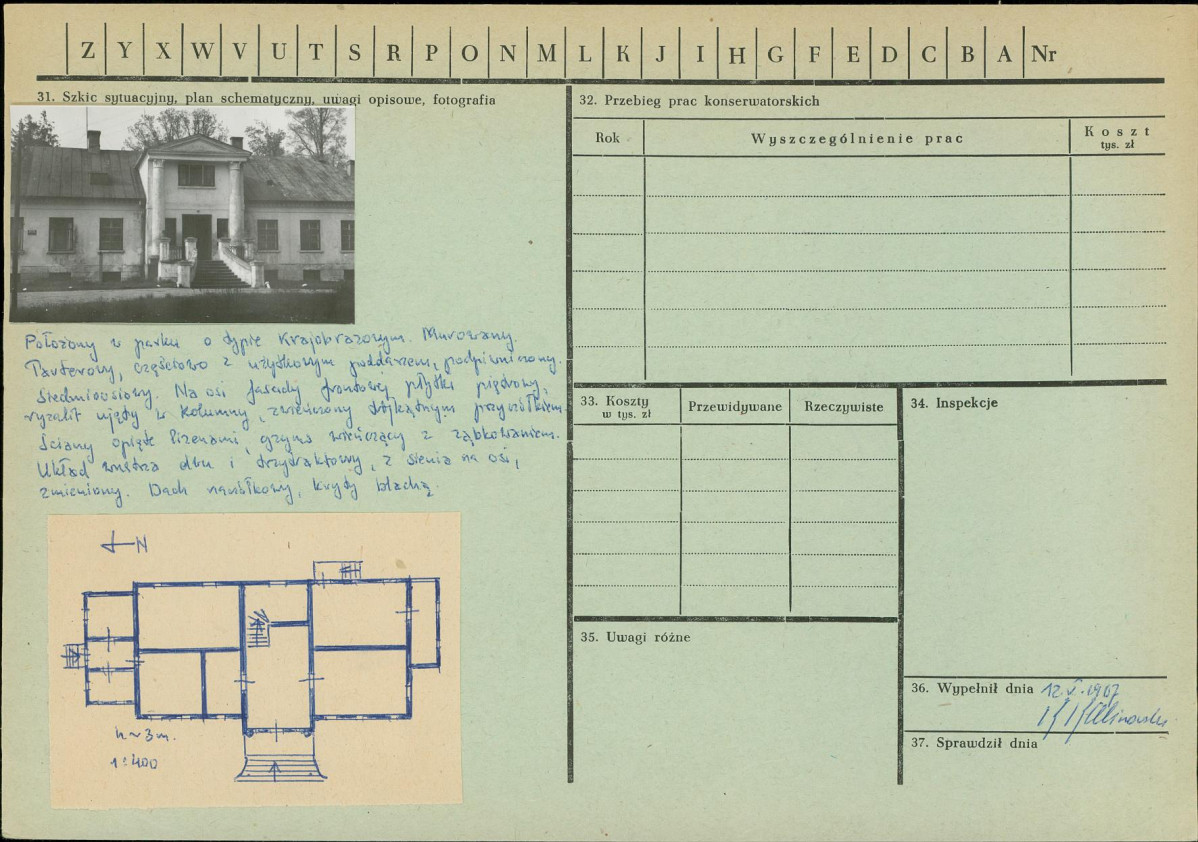 Z Y X W V U T S R P O N M L K J I H G F E D C B A Nr
31. Szkic sytuacyjny, plan schematyczny, uwagi opisowe, fotografia
Położony w parku o typie krajobrazowym. Murowany.
Parterowy, częściowo z użytkowym poddaszem, podpiwniczony.
Siedmioosiowy. Na osi fasady frontowej płytki piętrowy,
ryzalit ujęty w kolumny, zwieńczony trójkątnym przyczółkiem.
Ściany opięte lizenami, gzyms wieńczący z ząbkowaniem.
Układ wnętrza dwu i trzytraktowy, z sienią na osi,
zmieniony. Dach naczółkowy, kryty blachą.
N
h ~ 3 m.
1:400
32. Przebieg prac konserwatorskich
Rok
Wyszczególnienie prac
Koszt
tys. zł
33. Koszty
w tys. zł
Przewidywane
Rzeczywiste
34. Inspekcje
35. Uwagi różne
36. Wypełnił dnia 12.V.1967
37. Sprawdził dnia